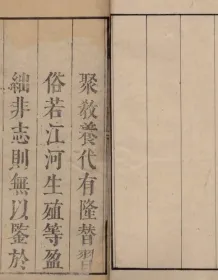 聚敎養代有隆替習
俗若江河生殖等盈
絀非志則無以鑒於